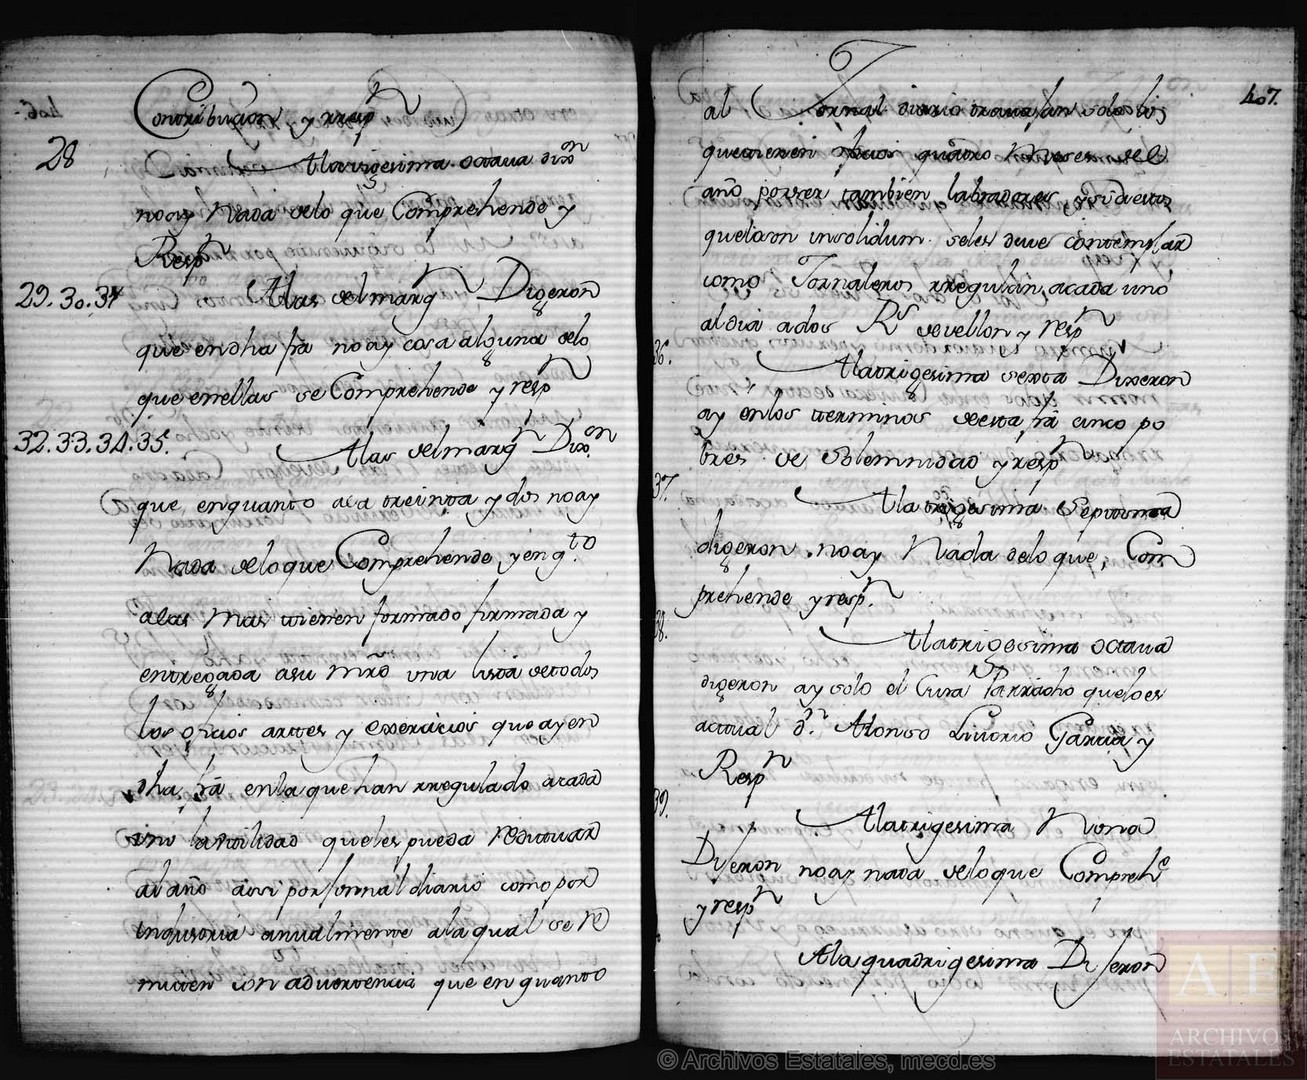 406.
Contribucion y rresp.n
28
A la vigesima octava dix.on
no ay Nada delo que Comprehende y
Resp.n
29.30.31
A las del marg.n Dixeron
que en dha fra no ay cosa alguna delo
que en ellas se Comprehende y resp.n
32.33.34.35.
A las del marg.n Dix.on
que, en quanto a la treinta y dos no ay
Nada delo que Comprehende, y en q.to
a las mas tienen formado firmada y
entregada a su mrd una lista de todos
los oficios artes y exercicios que ay en
dha, fra en la que han rregulado a cada
uno la utilidad que les pueda redituar
al año assi por Jornal diario como por
Industria anualmente a la qual se re
miten con advertencia que en quanto
407.
al Jornal diario travajan solo los
que tienen oficio quatro Meses del
año por ser tambien labradores, y
que lo son insolidum. seles deve contemplar
como Jornaleros rregulan, acada uno
al dia a dos R.s de vellon y resp.n
36.
A la trigesima sexta Dixeron
ay en los terminos de esta fra cinco po
bres de Solemnidad y resp.n
37.
A la trigesima Septima
dixeron, no ay Nada delo que, Com
prehende y resp.n
38.
A la trigesima octava
dixeron ay solo el Cura Parrocho que lo es
actual d.n Alonso Liborio Garcia y
Resp.n
39.
A la trigesima Nona
Dixeron no ay nada delo que Compreh.e
y resp.n
A la quadrigesima Dixeron
© Archivos Estatales, mecd.es
AE
ARCHIVOS
ESTATALES